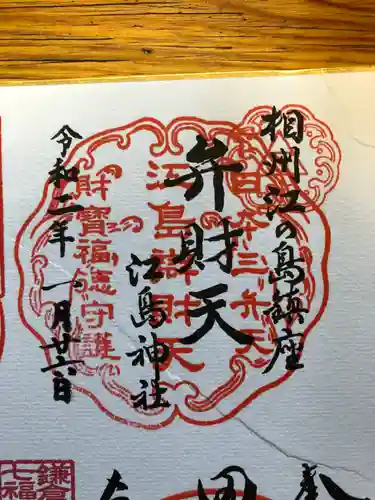 相州江の島鎮座
日本三弁天
弁財天
江島辨財天
江島神社
財寶福徳守護
令和二年一月廿六日
鎌倉
七福